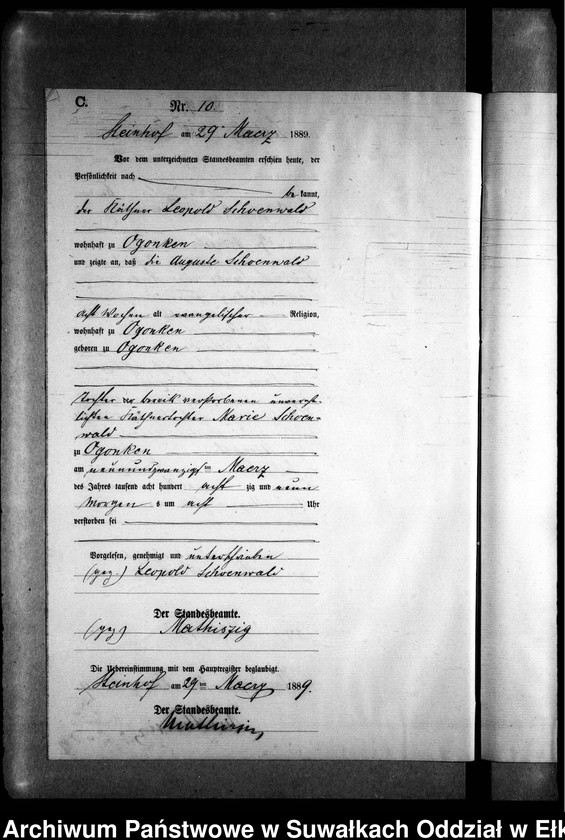 C.
Nr. 10.
Steinhof am 29 Maerz 1889.
Vor dem unterzeichneten Standesbeamten erschien heute, der
Persönlichkeit nach
be kannt,
der Käthner Leopold Schoenwald
wohnhaft zu Ogonken
und zeigte an, daß die Auguste Schoenwald
acht Wochen alt evangelischer Religion,
wohnhaft zu Ogonken
geboren zu Ogonken
Tochter der bereits verstorbenen unverehe-
lichten Käthnertochter Marie Schoen-
wald
zu Ogonken
am neunundzwanzigsten Maerz
des Jahres tausend acht hundert acht zig und neun
Morgen s um acht Uhr
verstorben sei
Vorgelesen, genehmigt und unterschrieben
(gez.) Leopold Schoenwald
Der Standesbeamte.
(gez) Mathiszig
Die Uebereinstimmung mit dem Hauptregister beglaubigt.
Steinhof am 29ten Maerz 1889.
Der Standesbeamte.
Mathiszig
Archiwum Państwowe w Suwałkach Oddział w Ełk